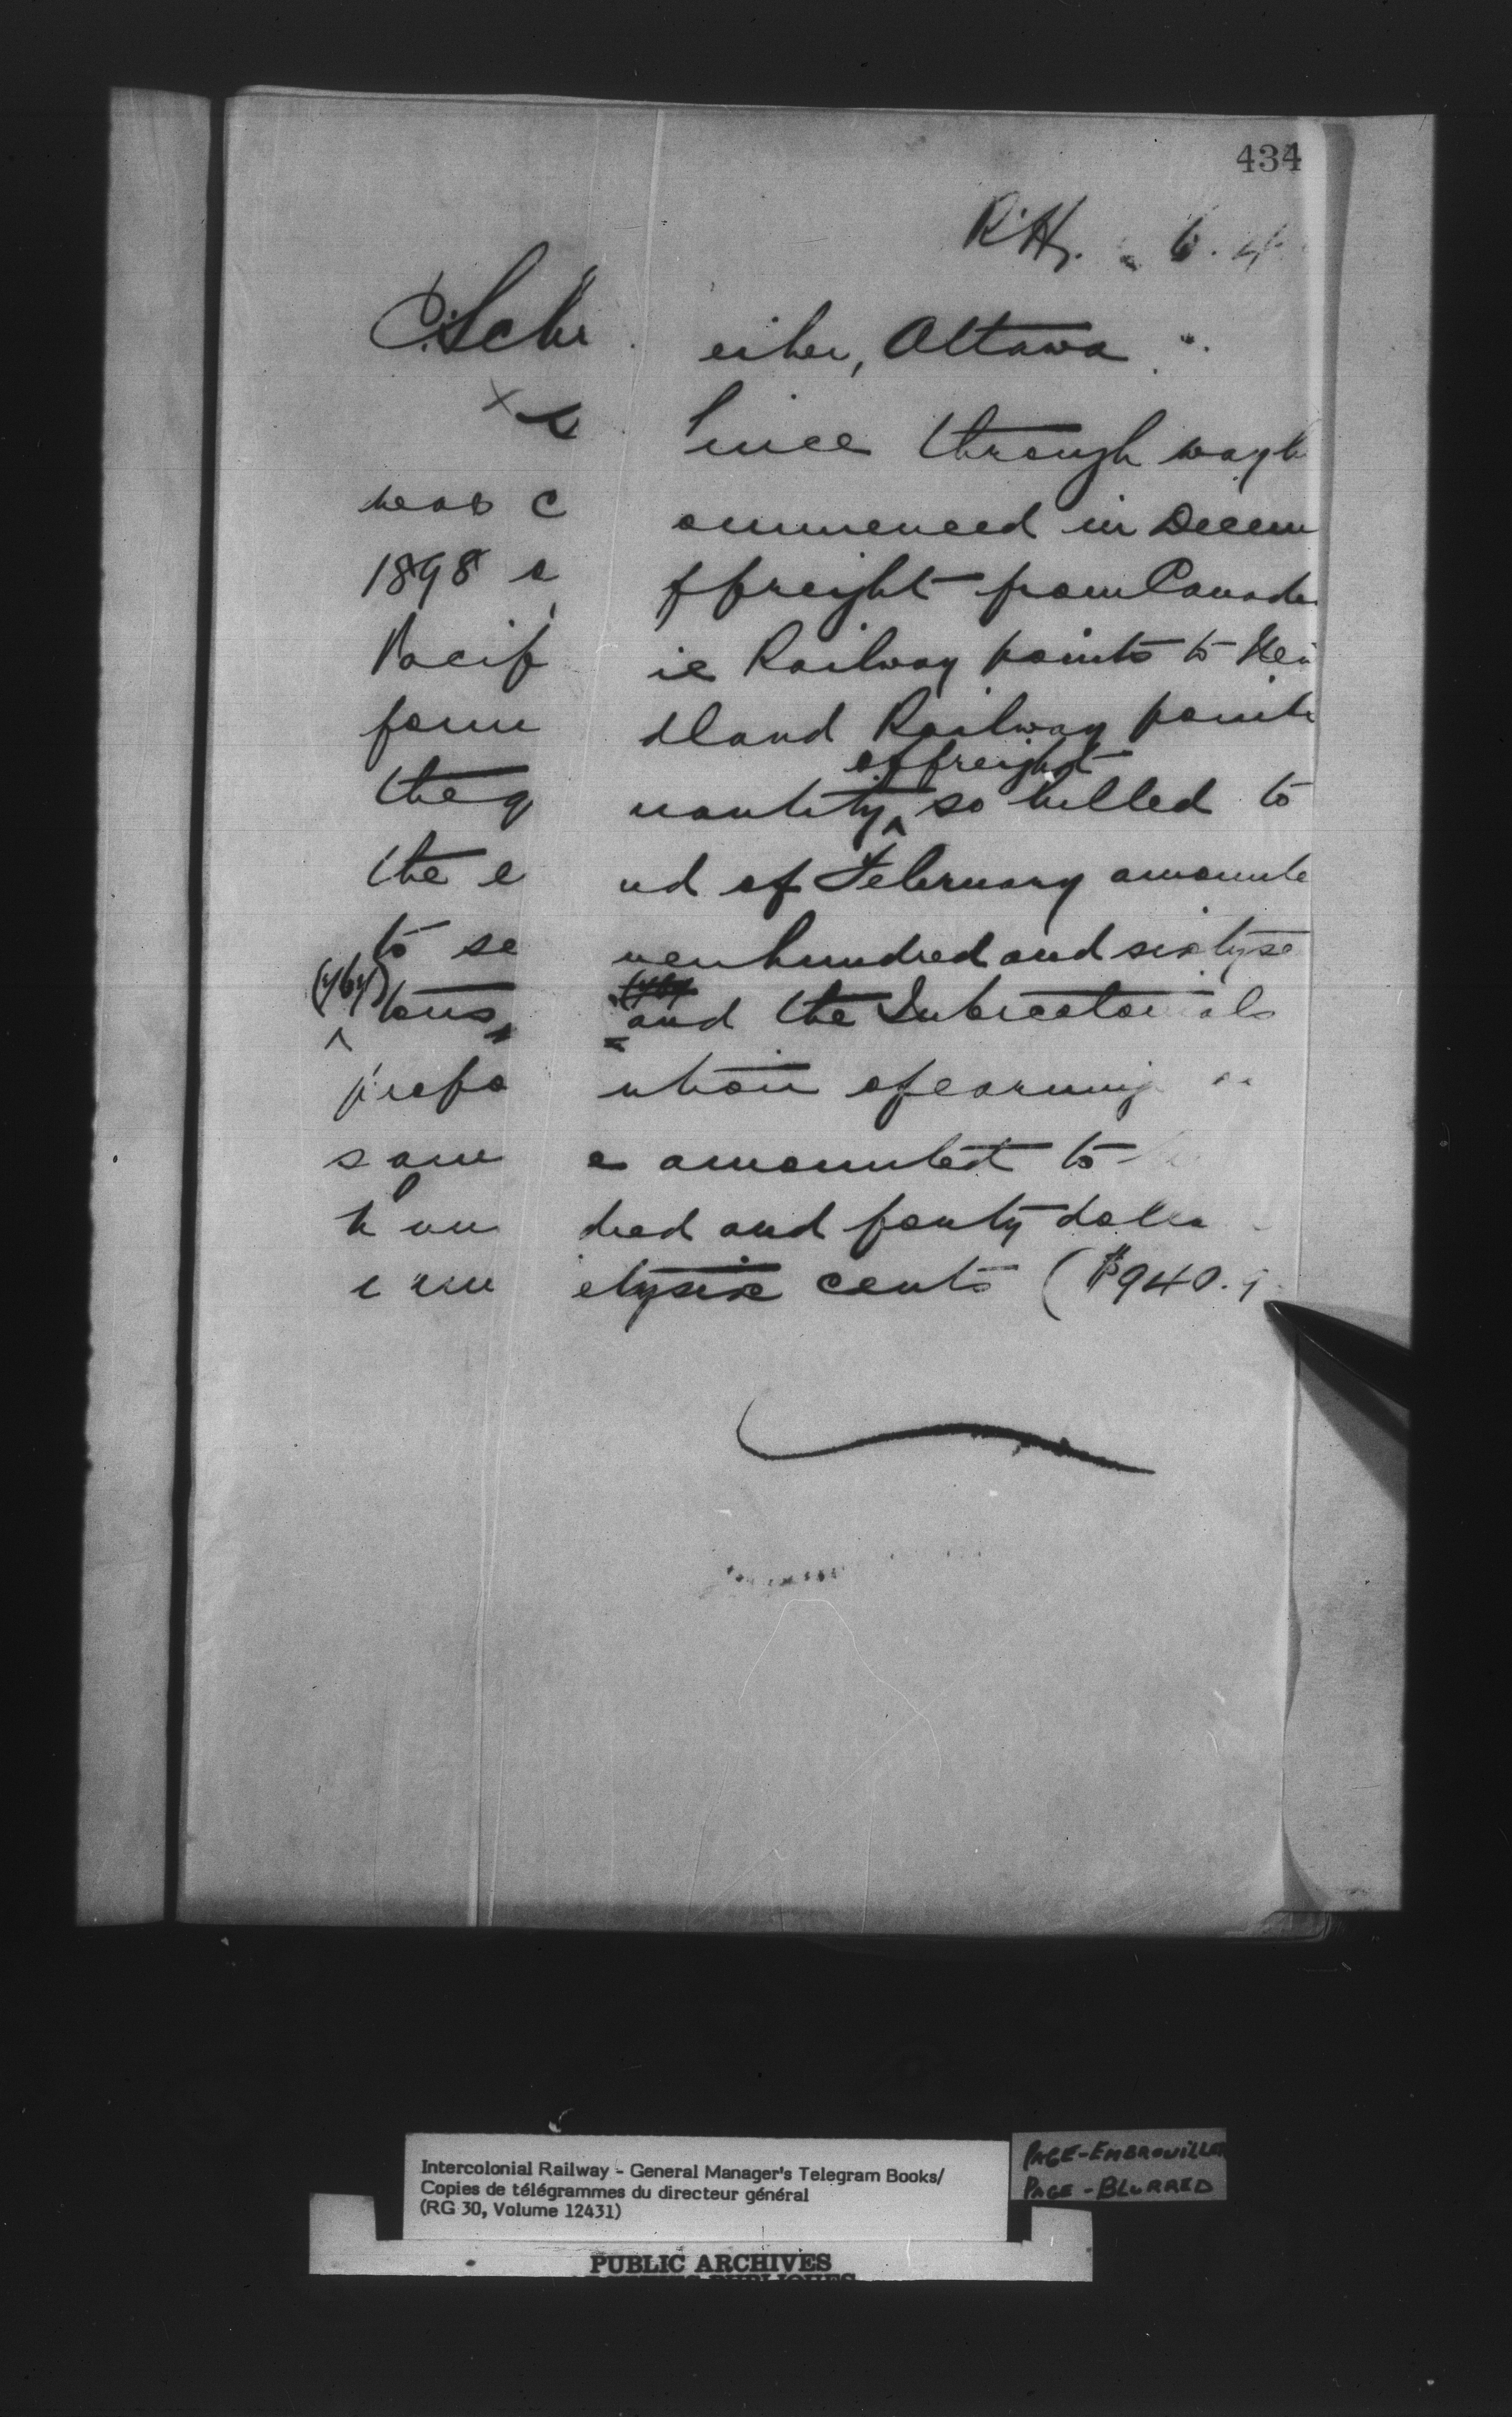 434
R'Hy. 6. 4
C. Schr eiber, Ottawa
x S Since through wayb
was c ommenced in Decem
1898 o f freight from Canadia
Pacif ic Railway points to New
foun dland Railway points
of freight
the q uantity ^ so billed to
the e nd of February amounte
to se ven hundred and sixtyse
(767) tons, (767 and the Intercolonials
propo rtion of earnings
sam e amounted to
hun dred and forty dolla
ninetysix cents ($940.9
Intercolonial Railway - General Manager's Telegram Books/
Copies de télégrammes du directeur général
(RG 30, Volume 12431)
PAGE-EMBROUILLEE
PAGE - BLURRED
PUBLIC ARCHIVES